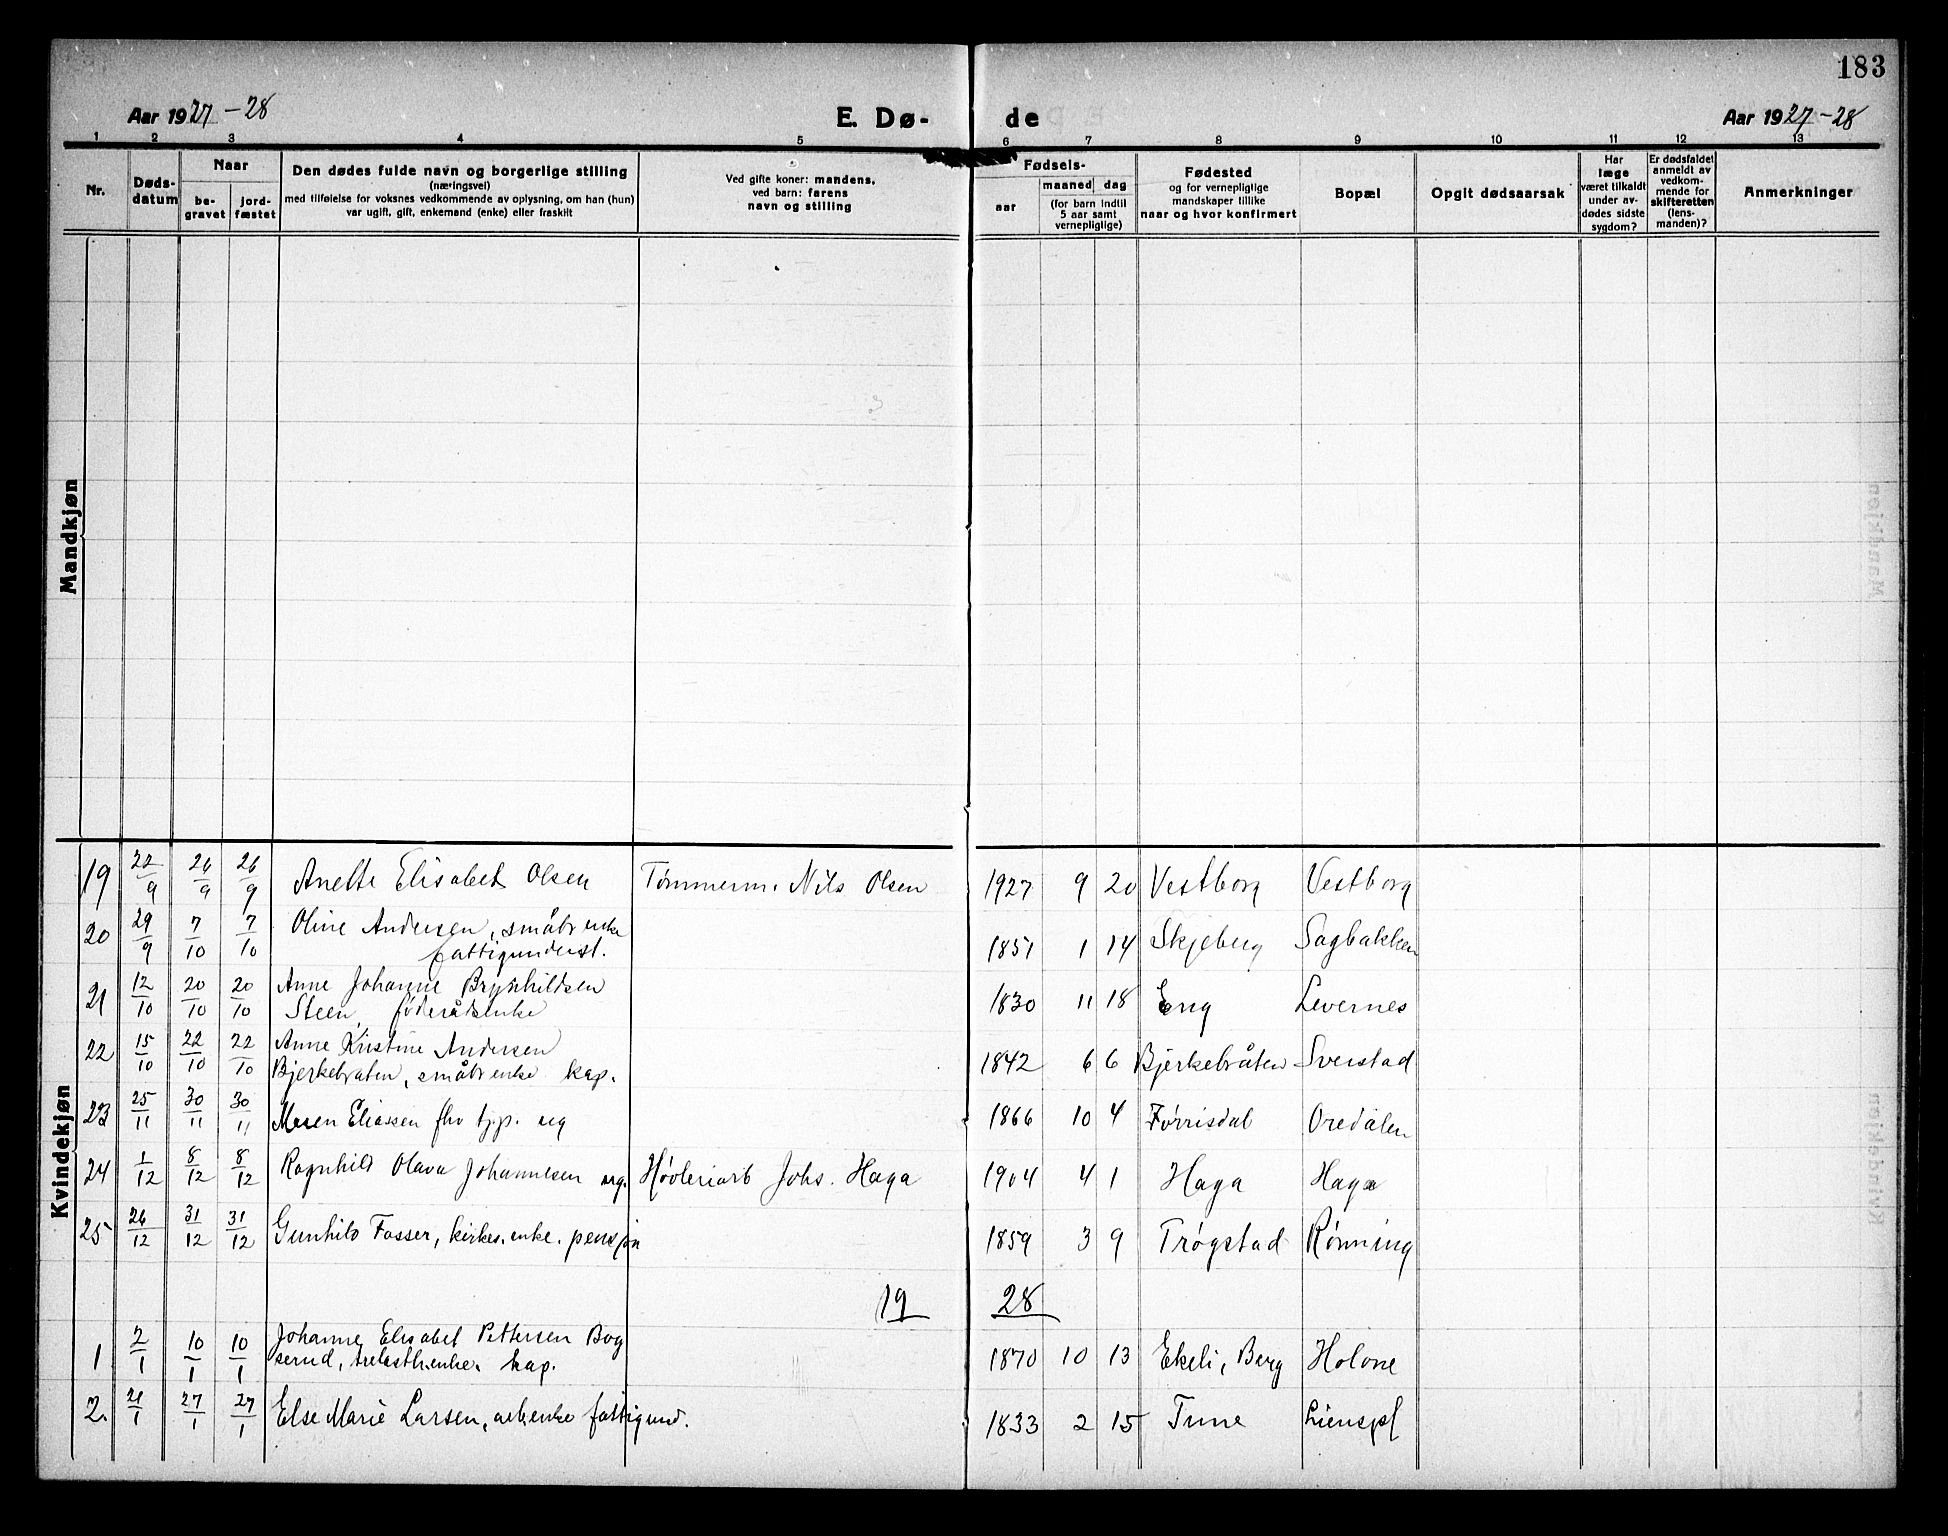 183
Aar 1927-28 E. Dø- de Aar 1927-28
1 2 3 4 5 6 7 8 9 10 11 12 13
Nr.
Døds-
datum
Naar
be-
gravet
jord-
fæstet
Den dødes fulde navn og borgerlige stilling
(næringsvei)
med tilføielse for voksnes vedkommende av oplysning, om han (hun)
var ugift, gift, enkemand (enke) eller fraskilt
Ved gifte koner: mandens,
ved barn: farens
navn og stilling
Fødsels-
aar
maaned dag
(for barn indtil
5 aar samt
vernepligtige)
Fødested
og for vernepligtige
mandskaper tillike
naar og hvor konfirmert
Bopæl
Opgit dødsaarsak
Har
læge
været tilkaldt
under av-
dødes sidste
sygdom?
Er dødsfaldet
anmeldt av
vedkom-
mende for
skifteretten
(lens-
manden)?
Anmerkninger
Mandkjøn
Kvindekjøn
19 22/9 26/9 26/9 Anette Elisabet Olsen Tømmerm. Nils Olsen 1927 9 20 Vestborg Vestborg
20 29/9 7/10 7/10 Oline Andersen, småbr enke
fattigunderst. 1851 1 14 Skjeberg Sagbakken
21 12/10 20/10 20/10 Anne Johanne Brynhildsen
Steen, føderådsenke 1830 11 18 Eng Levernes
22 15/10 22/10 22/10 Anne Kristine Andersen
Bjerkebråten, småbr enke kap. 1842 6 6 Bjerkebråten Sverstad
23 25/11 30/11 30/11 Maren Eliassen fhv tjp. ug 1866 10 4 Førrisdal Oredalen
24 1/12 8/12 8/12 Ragnhild Olava Johannesen ug. Høvleriarb Johs. Haga 1904 4 1 Haga Haga
25 26/12 31/12 31/12 Gunhild Fosser, kirkes. enke. pensjon 1859 3 9 Trøgstad Rønning
19 28
1 2/1 10/1 10/1 Johanne Elisabet Pettersen Bog
serud, trelasth.enke. kap. 1870 10 13 Ekeli, Berg Holone
2. 21/1 27/1 27/1 Else Marie Larsen, arb.enke fattigund. 1833 2 15 Tune Lienspl